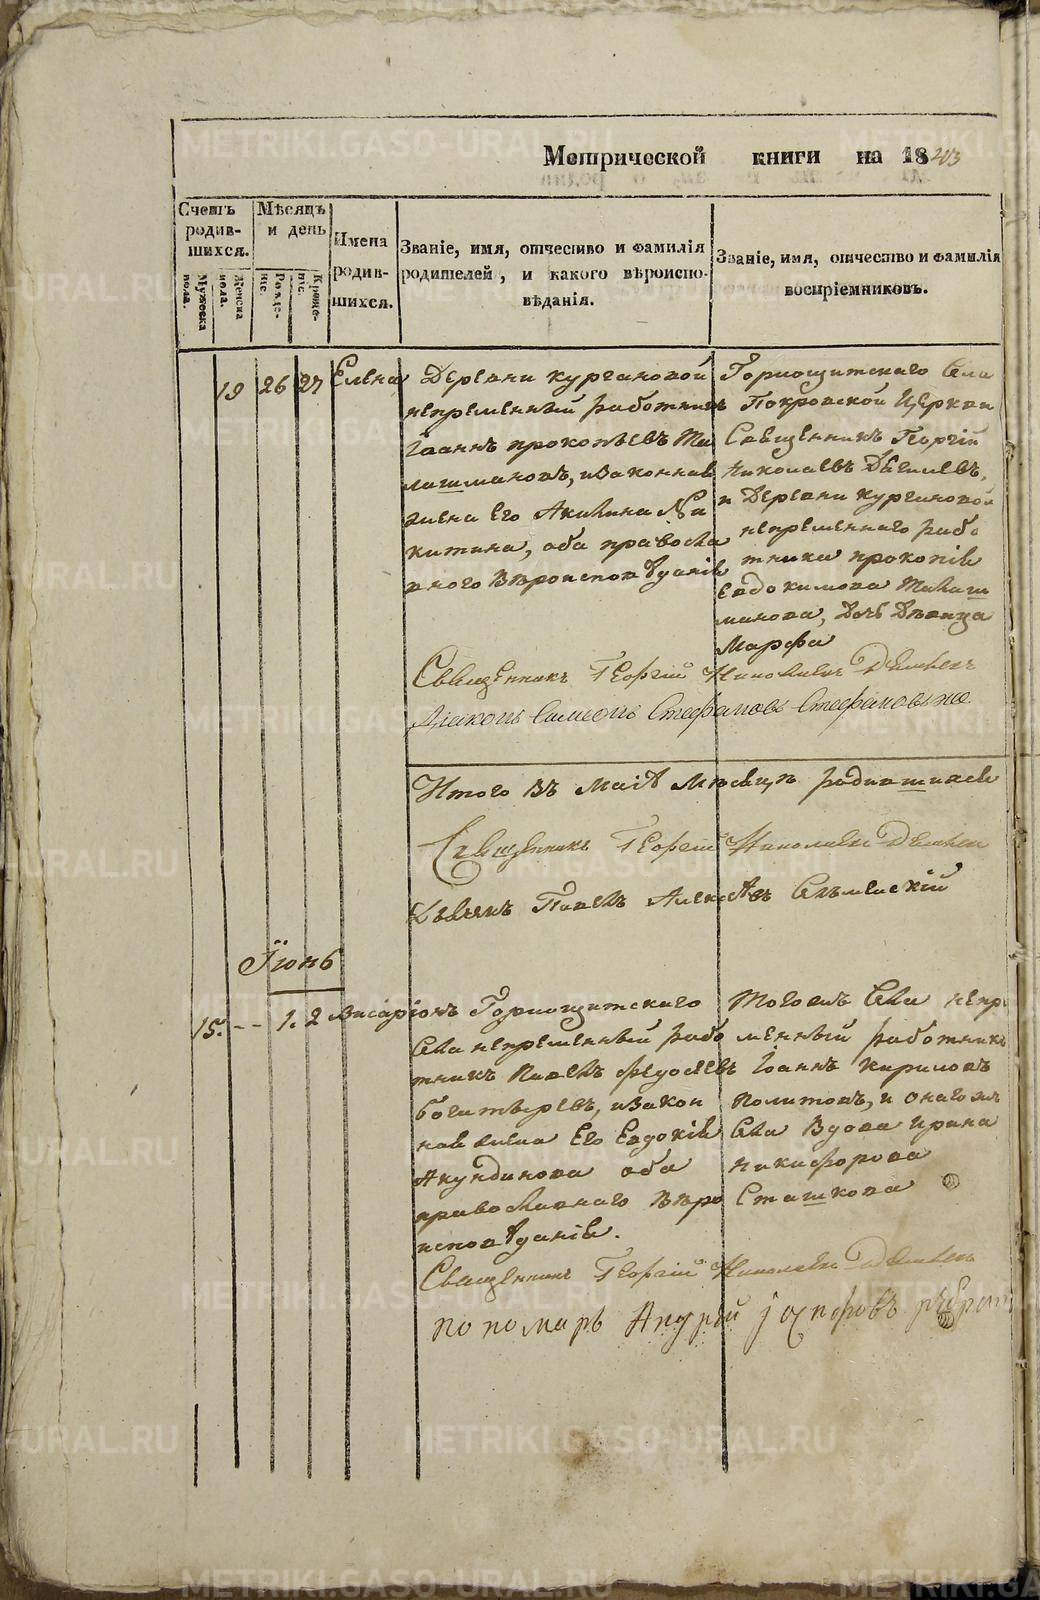 Метрической книги на 1843
Счетъ родившихся.
Мужеска пола.
Женска пола.
Мѣсяцъ и день
Рожденіе.
Крещеніе.
Имена родившихся.
Званіе, имя, отчество и фамилія родителей, и какого вѣроисповѣданія.
Званіе, имя, отчество и фамилія воспріемниковъ.
19 26 27 Елена
Деревни Кургановой
непременный работникъ
Іоаннъ прокопьевъ Та
лашмановъ, и законная
жена Его Акилина Ни
китина, оба правосла
вного Вѣроисповѣданія
Горнощитскаго Села
Покровской Церкви
Священникъ Георгій
Николаевъ
и Деревни Кургановой
непременнаго рабо
тника прокопія
Евдокимова Талаш
манова, Дочь Дѣвица
Марфа
Священникъ Георгій Николаевъ
Діаконъ Самсонъ Стефановъ
Итого въ Маіѣ Мѣсяцѣ родившихся
Священникъ Георгій Николаевъ
Дьячекъ Павелъ Алексѣевъ
Іюнь
15. -- 1. 2 Висаріонъ
Горнощитскаго
Села непременный рабо
тникъ Павелъ Федосеевъ
богатыревъ, и закон
ная жена Его Евдокія
Акундинова оба
православнаго Вѣро
исповѣданія.
Тогожъ Села непре
менный работникъ
Іоаннъ Кириловъ
Политовъ, и онагожъ
Села Вдова Ирина
Никифорова
Сташкова
Священникъ Георгій Николаевъ
пономарь Андрей
METRIKI.GASO-URAL.RU